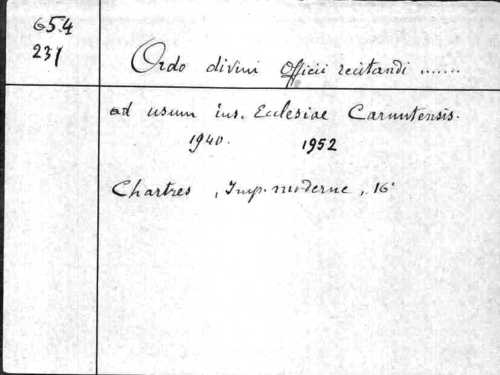 654
231
Ordo divini Officii recitandi .......
ad usum ins. Ecclesiae Carnutensis.
1940. 1952
Chartres, Imp. moderne, 16°